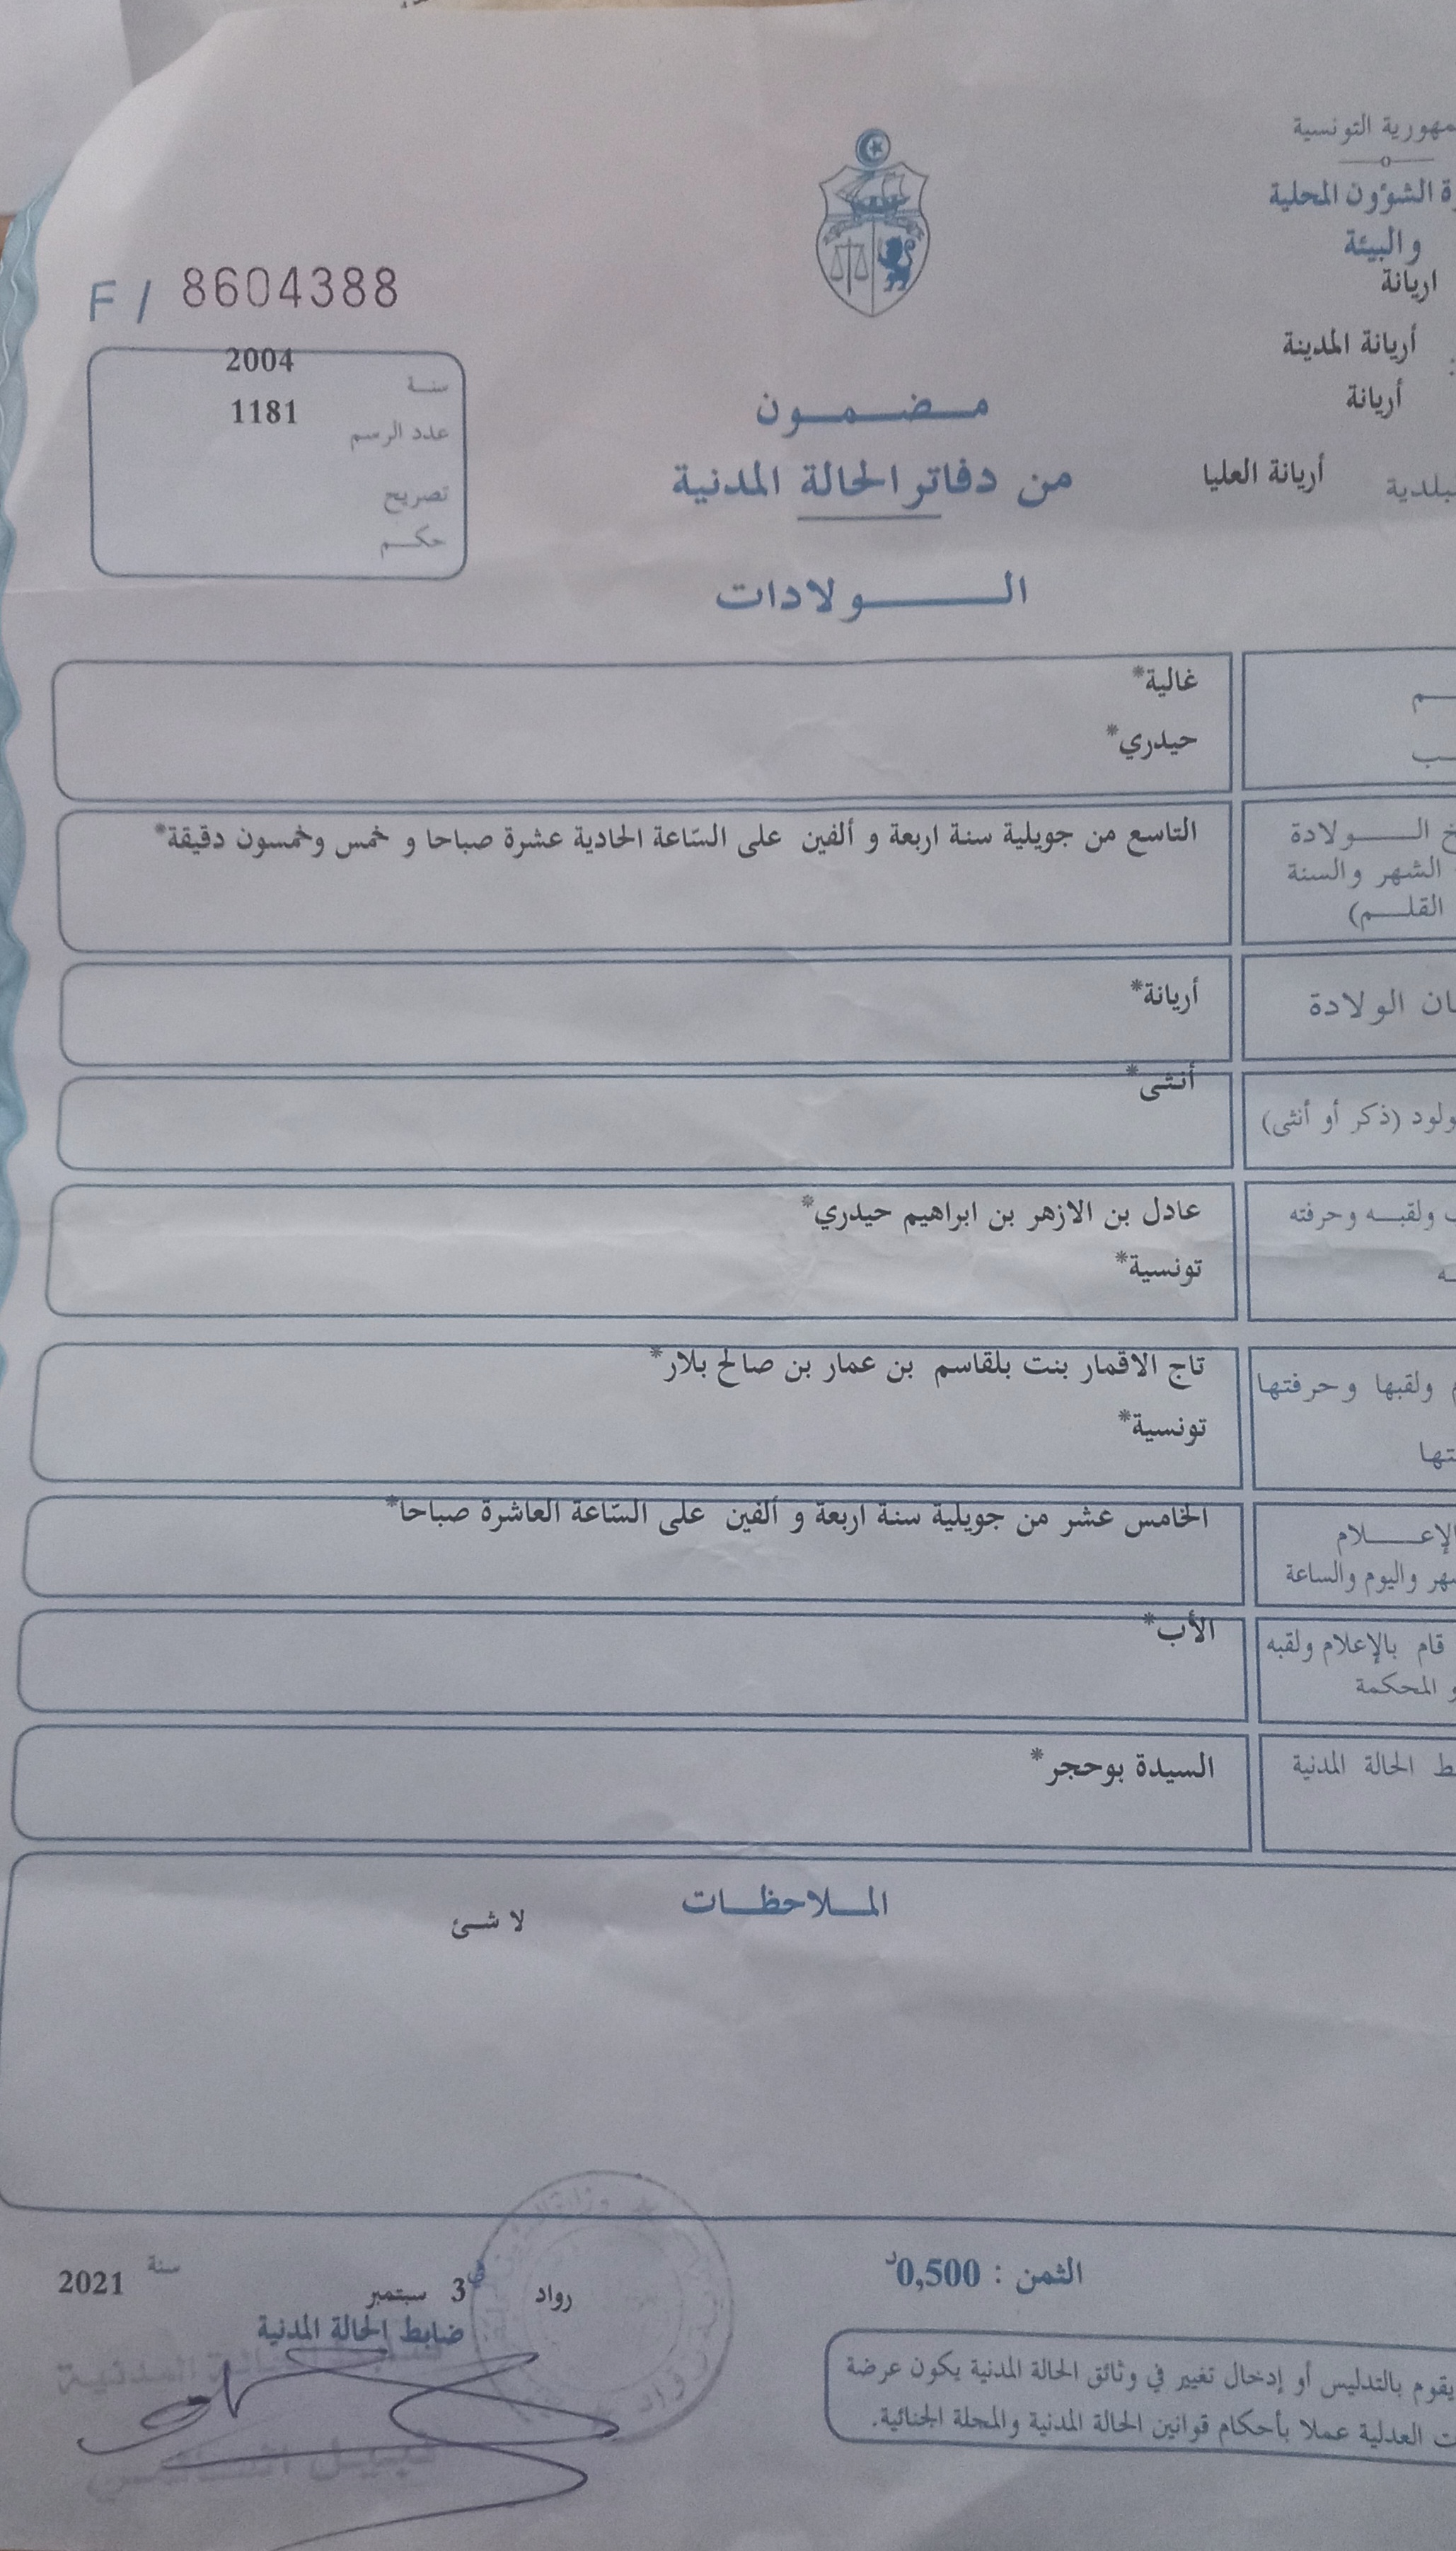 التونسية
الشؤون المحلية
والبيئة
اريانة
أريانة المدينة
أريانة
أريانة العليا
F / 8604388
سنة 2004
عدد الرسم 1181
تصريح
حكم
مضمون
من دفاتر الحالة المدنية
الولادات
غالية*
حيدري*
الولادة
الشهر والسنة
القلم)
التاسع من جويلية سنة اربعة و ألفين على السّاعة الحادية عشرة صباحا و خمس وخمسون دقيقة*
الولادة
أريانة*
(ذكر أو أنثى)
أنثى*
ولقبه وحرفته
عادل بن الازهر بن ابراهيم حيدري*
تونسية*
ولقبها وحرفتها
تاج الاقمار بنت بلقاسم بن عمار بن صالح بلار*
تونسية*
واليوم والساعة
الخامس عشر من جويلية سنة اربعة و ألفين على السّاعة العاشرة صباحا*
قام بالإعلام ولقبه
المحكمة
الأب*
الحالة المدنية
السيدة بوحجر*
الملاحظات
لا شئ
الثمن : 0,500د
رواد في 3 سبتمبر سنة 2021
ضابط الحالة المدنية
يقوم بالتدليس أو إدخال تغيير في وثائق الحالة المدنية يكون عرضة
العدلية عملا بأحكام قوانين الحالة المدنية والمجلة الجنائية.